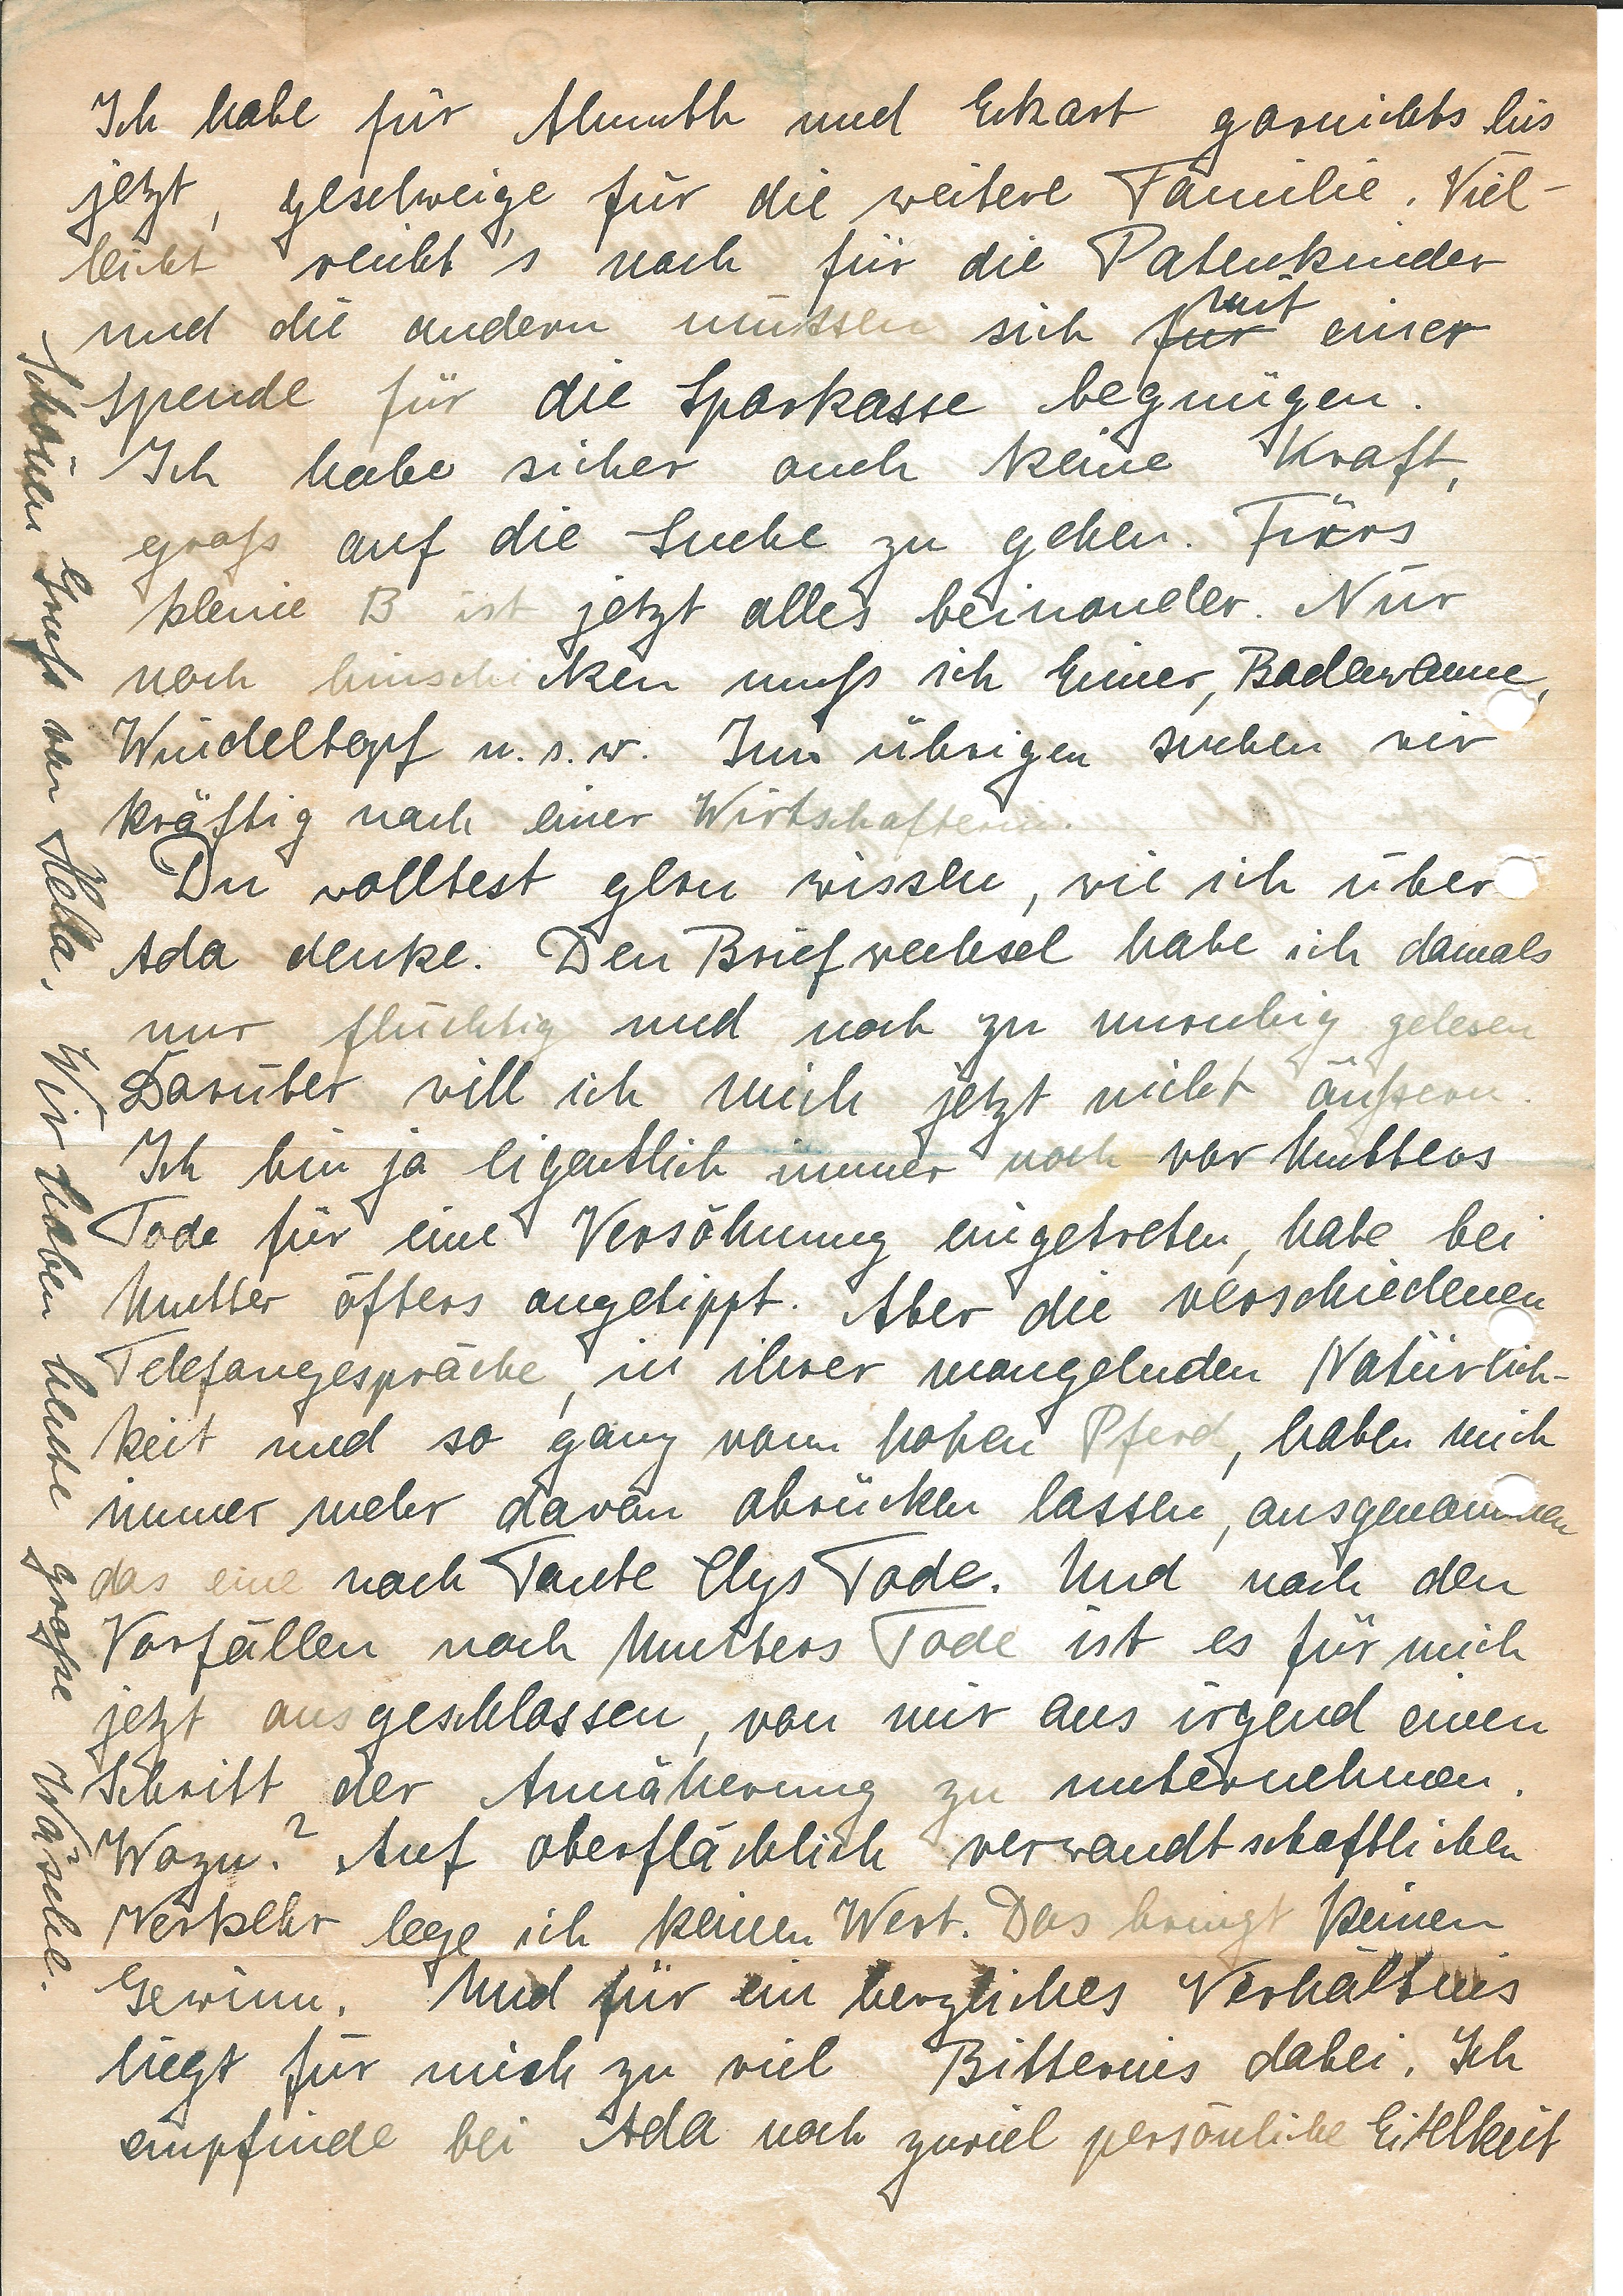 Ich habe für Almuth und Eckart garnichts bis
jetzt, geschweige für die weitere Familie. Viel-
leicht reicht's noch für die Patenkinder
und die andern müssen sich ~~für~~ mit einer
Spende für die Sparkasse begnügen.
Ich habe sicher auch keine Kraft,
groß auf die Suche zu gehen. Fürs
kleine B ist jetzt alles beinander. Nur
noch hinschicken muß ich Eimer, Badewanne,
Windeltopf u.s.w. Im übrigen suchen wir
kräftig nach einer Wirtschafterin.
Du wolltest gern wissen, wie ich über
Ada denke. Den Briefwechsel habe ich damals
nur flüchtig und noch zu unruhig gelesen
Darüber will ich mich jetzt nicht äußern.
Ich bin ja eigentlich immer noch vor Mutters
Tode für eine Versöhnung eingetreten, habe bei
Mutter öfters angetippt. Aber die verschiedenen
Telefongespräche, in ihrer mangelnden Natürlich-
keit und so ganz vom hohen Pferd, haben mich
immer mehr davon abrücken lassen, ausgenommen
das eine nach Tante Elys Tode. Und nach den
Vorfällen nach Mutters Tode ist es für mich
jetzt ausgeschlossen, von mir aus irgend einen
Schritt der Annäherung zu unternehmen.
Wozu? Auf oberflächlich verwandtschaftlichen
Verkehr lege ich keinen Wert. Das bringt keinen
Gewinn. Und für ein herzliches Verhältnis
liegt für mich zu viel Bitternis dabei. Ich
empfinde bei Ada noch zuviel persönliche Eitelkeit
Schönen Gruß von Hella. Wir haben heute große Wäsche.